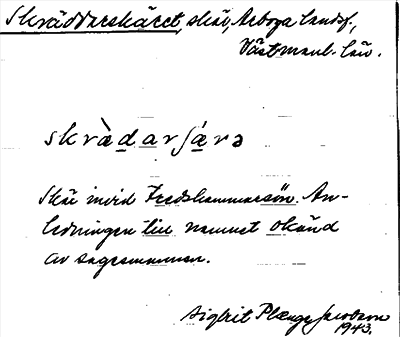 Skräddarskäret, skär, Arboga landsf.,
Västmanl. län.
skrädarſärə
Skär invid Fredshammarsön. An-
ledningen till namnet okänd
av sagesmannen.
Sigbrit Plænge Jacobson
1943.